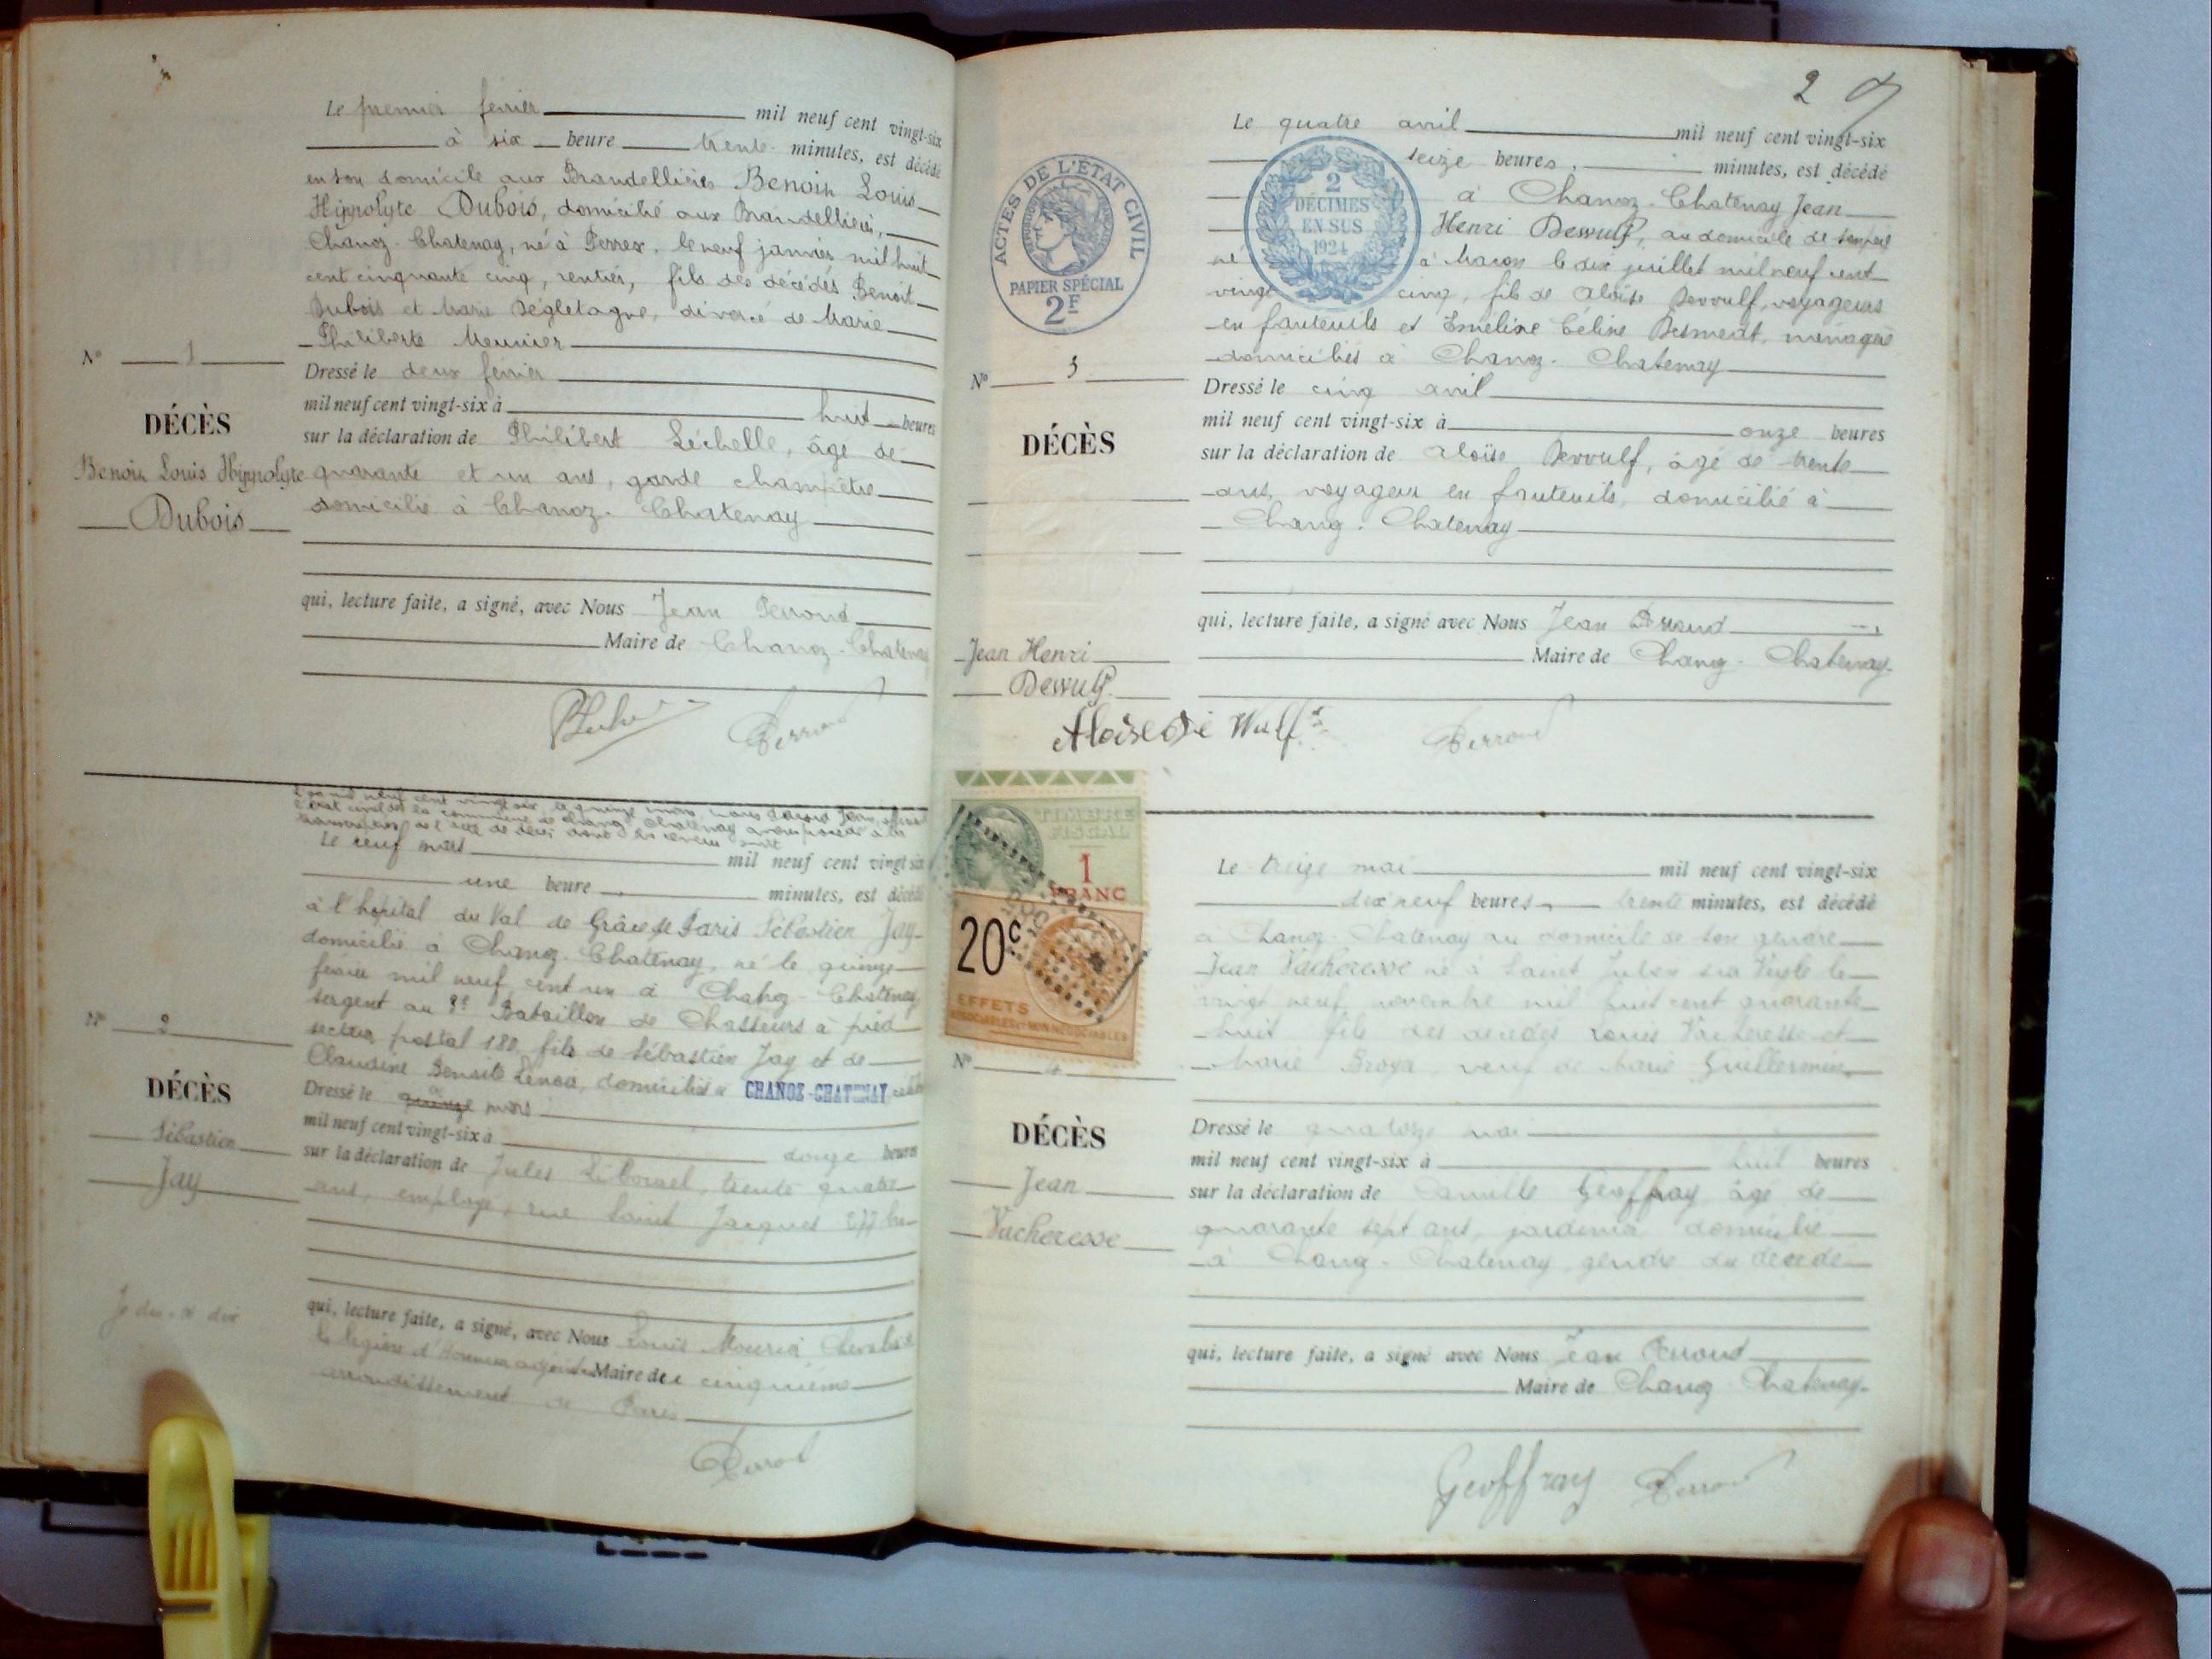 Le premier fevrier mil neuf cent vingt-six
à six heure trente minutes, est décédé
en son domicile aux Brandellières Benoit Louis
Hippolyte Dubois, domicilié aux Brandellières,
Chanoz-Chatenay, né à Perrex, le neuf janvier mil huit
cent cinquante cinq, rentier, fils des décédés Benoit
Dubois et Marie divorcé de Marie
Philiberte Meunier
N° 1
Dressé le deux février
mil neuf cent vingt-six à huit heures
DÉCÈS
sur la déclaration de Philibert Léchelle, âgé de
Benoit Louis Hippolyte
quarante et un ans, garde champêtre
Dubois
domicilié à Chanoz-Chatenay
qui, lecture faite, a signé, avec Nous Jean Perroud
Maire de Chanoz-Chatenay
Perroud
Le neuf mars mil neuf cent vingt-six
une heure minutes, est décédé
à l'hopital du Val de Grâce de Paris Sébastien Jay
domicilié à Chanoz-Chatenay, né le quinze
février mil neuf cent un à Chanoz-Chatenay
sergent au Bataillon de Chasseurs à pied
secteur postal 180, fils de Sébastien Jay et de
N° 2
Claudine Benoite domiciliés à CHANOZ-CHATENAY
Dressé le mars
DÉCÈS
mil neuf cent vingt-six à douze heures
Sébastien
sur la déclaration de Jules trente quatre
Jay
ans, employé, rue Saint Jacques 277
qui, lecture faite, a signé, avec Nous Louis
légion d'Honneur adjoint Maire de cinquième
arrondissement de Paris
Perroud
2
ACTES DE L'ÉTAT CIVIL
PAPIER SPÉCIAL
2F
2
DÉCIMES
EN SUS
1924
Le quatre avril mil neuf cent vingt-six
seize heures, minutes, est décédé
à Chanoz-Chatenay Jean
Henri Dewulf, au domicile de son père
né à Macon le dix juillet mil neuf cent
vingt cinq, fils de Aloïse Dewulf, voyageur
en fauteuils et Emeline Céline ménagère
domiciliés à Chanoz-Chatenay
N° 3
Dressé le cinq avril
mil neuf cent vingt-six à onze heures
DÉCÈS
sur la déclaration de Aloïse Dewulf, âgé de trente
ans, voyageur en fauteuils, domicilié à
Chanoz-Chatenay
qui, lecture faite, a signé avec Nous Jean Perroud
Jean Henri
Maire de Chanoz-Chatenay
Dewulf
Aloïse De Wulf Perroud
TIMBRE
FISCAL
1
FRANC
20c
EFFETS
NÉGOCIABLES ET NON NÉGOCIABLES
Le treize mai mil neuf cent vingt-six
dix neuf heures trente minutes, est décédé
à Chanoz-Chatenay au domicile de son gendre
Jean Vacheresse né à Saint Julien sur Veyle le
vingt neuf novembre mil huit cent quarante
huit fils des décédés Louis Vacheresse et
Marie Broya, veuf de Marie Guillermin
N° 4
Dressé le quatorze mai
DÉCÈS
mil neuf cent vingt-six à huit heures
Jean
sur la déclaration de Camille Geoffray âgé de
Vacheresse
quarante sept ans, jardinier domicilié
à Chanoz-Chatenay, gendre du décédé
qui, lecture faite, a signé avec Nous Jean Perroud
Maire de Chanoz-Chatenay
Geoffray Perroud